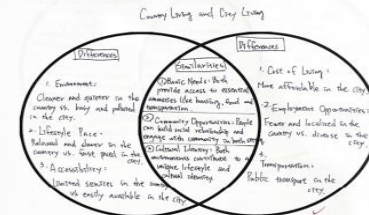 Country Living and City Living
Differences
Differences
Similarities
1. Environment:
Cleaner and quieter in the
country vs. busy and polluted
in the city.
2. Lifestyle Pace:
Balanced and slower in the
country vs. fast paced in the city.
3. Accessibility:
Limited services in the country
vs easily available in the city
① Basic Needs: Both
provide access to essential
amenities like housing, food and
transportation.
② Community Opportunities: People
can build social relationship and
engage with community in both
③ Cultural Identity: Both
environments contribute to a
unique lifestyle and
cultural identity.
1. Cost of Living:
More affordable in the city.
2. Employment Opportunities:
Fewer and localized in the
country vs. diverse in the
city.
3.
Transportation:
Public transport in the
city.